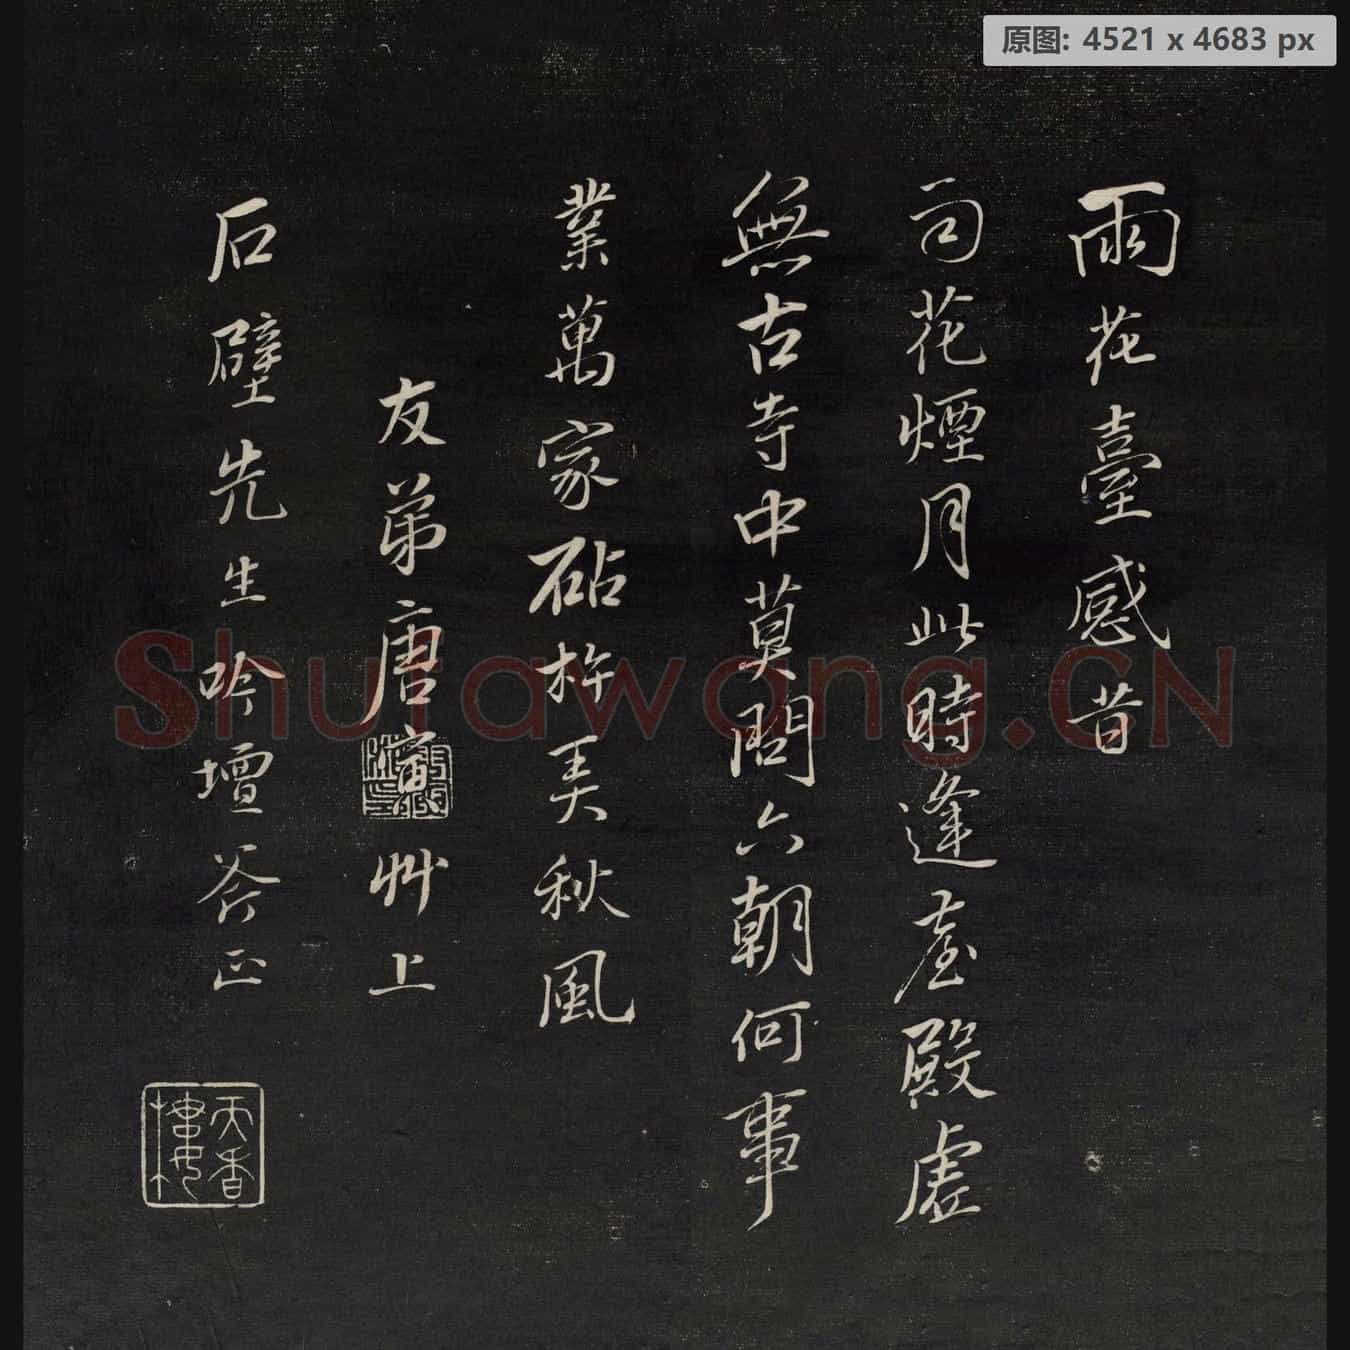 雨花臺感昔
司花煙月此時逢臺殿虛
無古寺中莫問六朝何事
業萬家砧杵美秋風
友弟唐寅艸上
石壁先生吟壇斧正
天香樓
原图: 4521 x 4683 px
Shufawang.CN